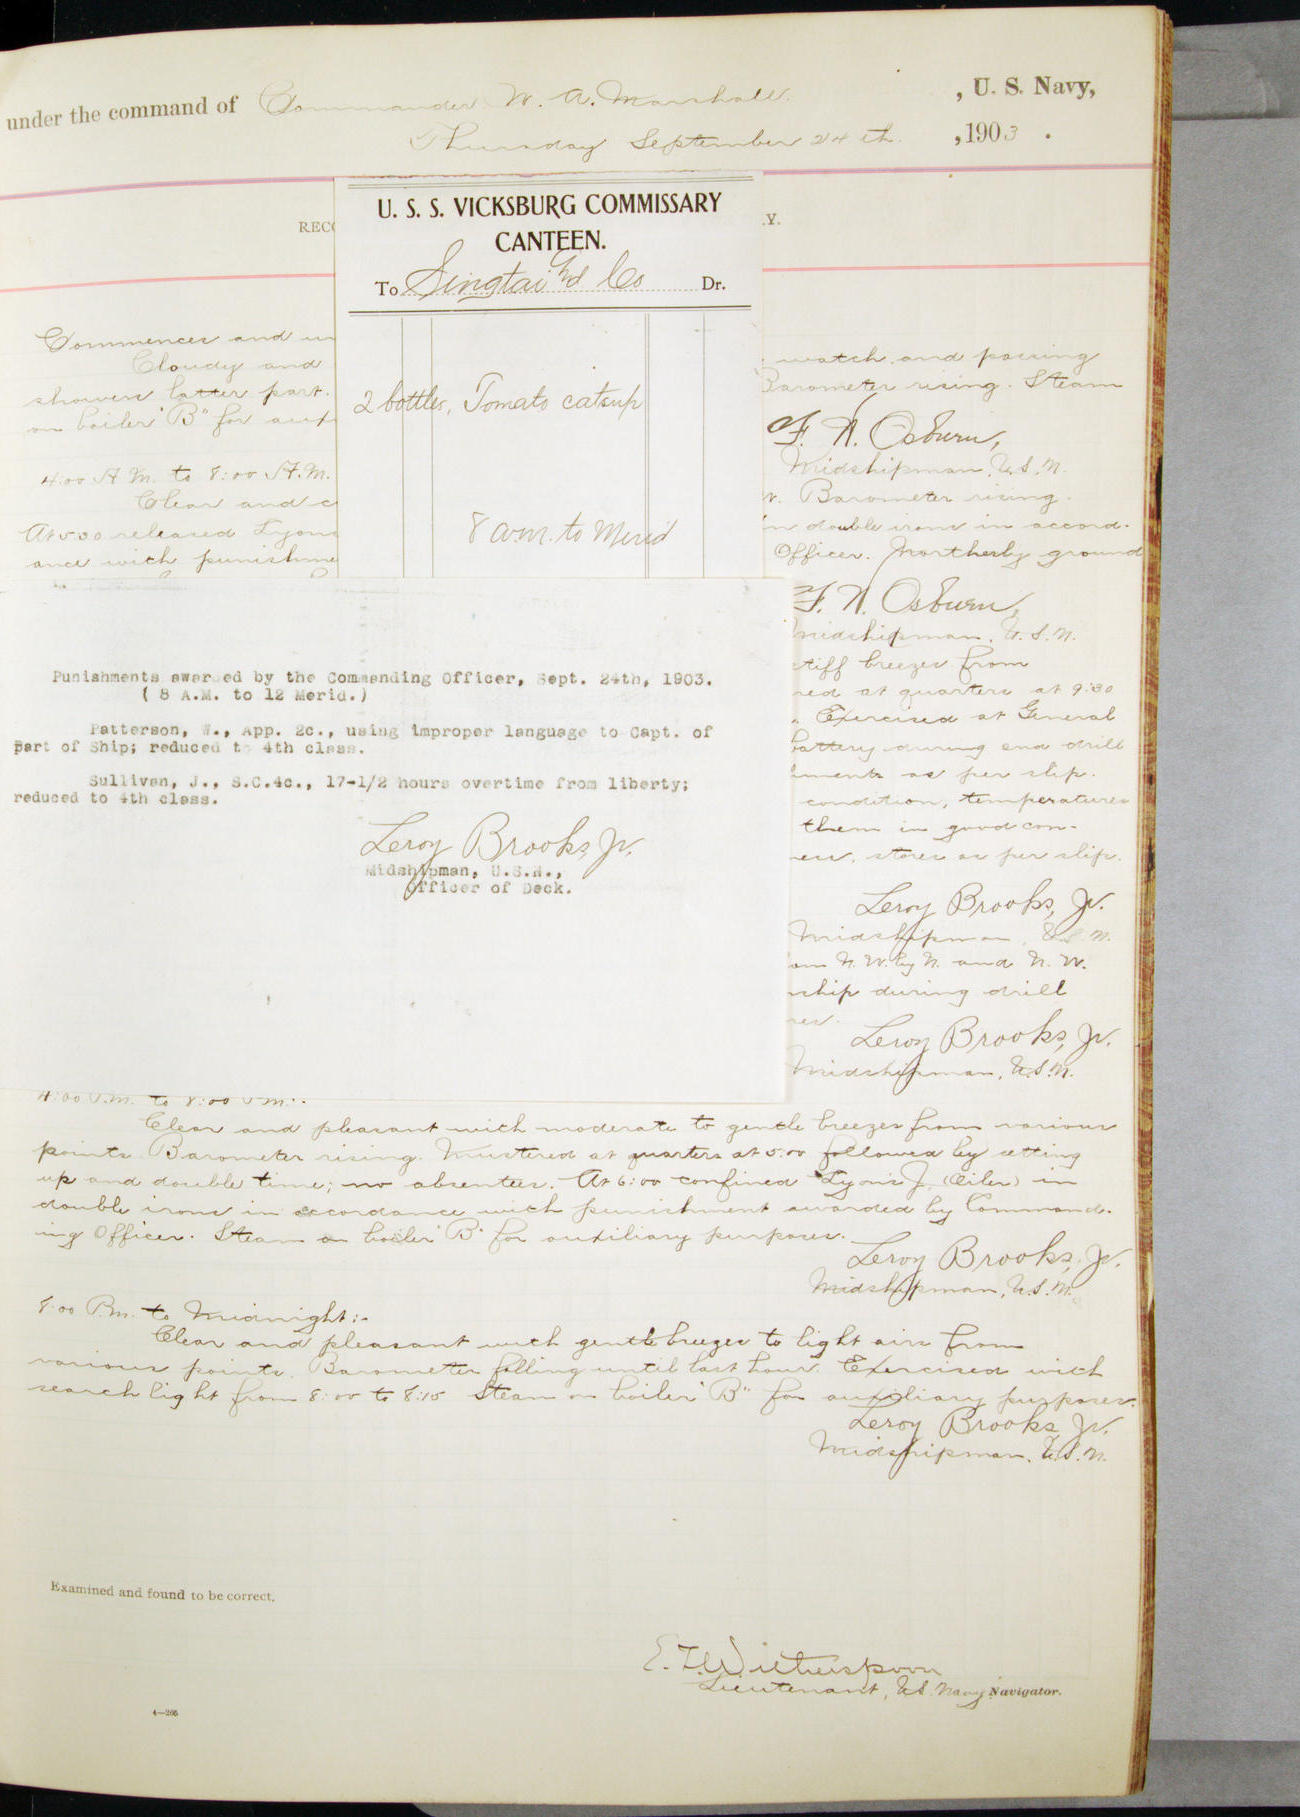 under the command of Commander W. A. Marshall. , U. S. Navy,
Thursday September 24th. , 1903 .
U. S. S. VICKSBURG COMMISSARY
CANTEEN.
To Singtai & Co Dr.
2 bottles, Tomato catsup
8 a.m. to Merid
RECO
.Y.
Commences and un
Cloudy and
showers latter part.
on boiler "B" for aux
4:00 A.M. to 8:00 A.M.
Clear and c
At 5:00 released Lyons
ance with punishme
watch and passing
Barometer rising. Steam
F. N. Osburn,
Midshipman, U.S.N.
Barometer rising.
in double irons in accord-
Officer. Northerly ground
F. N. Osburn,
Midshipman, U.S.N.
stiff breezes from
red at quarters at 9:30
Exercised at General
battery during and drill
ments as per slip.
condition, temperatures
them in good con-
ness, stores as per slip.
Leroy Brooks, Jr.
Midshipman, U.S.N.
om N.W. by N. and N.W.
ship during drill
res.
Leroy Brooks, Jr.
Midshipman, U.S.N.
Punishments awarded by the Commanding Officer, Sept. 24th, 1903.
( 8 A.M. to 12 Merid.)
Patterson, W., App. 2c., using improper language to Capt. of
part of Ship; reduced to 4th class.
Sullivan, J., S.C.4c., 17-1/2 hours overtime from liberty;
reduced to 4th class.
Leroy Brooks, Jr.
Midshipman, U.S.N.,
Officer of Deck.
4:00 P.M. to 8:00 P.M.:-
Clear and pleasant with moderate to gentle breezes from various
points. Barometer rising. Mustered at quarters at 5:00 followed by setting
up and double time; no absentees. At 6:00 confined Lyons J. (Oiler) in
double irons in accordance with punishment awarded by Command-
ing Officer. Steam on boiler "B" for auxiliary purposes.
Leroy Brooks, Jr.
Midshipman, U.S.N.
8:00 P.M. to Midnight:-
Clear and pleasant with gentle breezes to light airs from
various points. Barometer falling until last hour. Exercised with
search light from 8:00 to 8:15 Steam on boiler "B" for auxiliary purposes.
Leroy Brooks, Jr.
Midshipman, U.S.N.
Examined and found to be correct.
E. T. Witherspoon
Lieutenant, U.S. Navy Navigator.
4—266